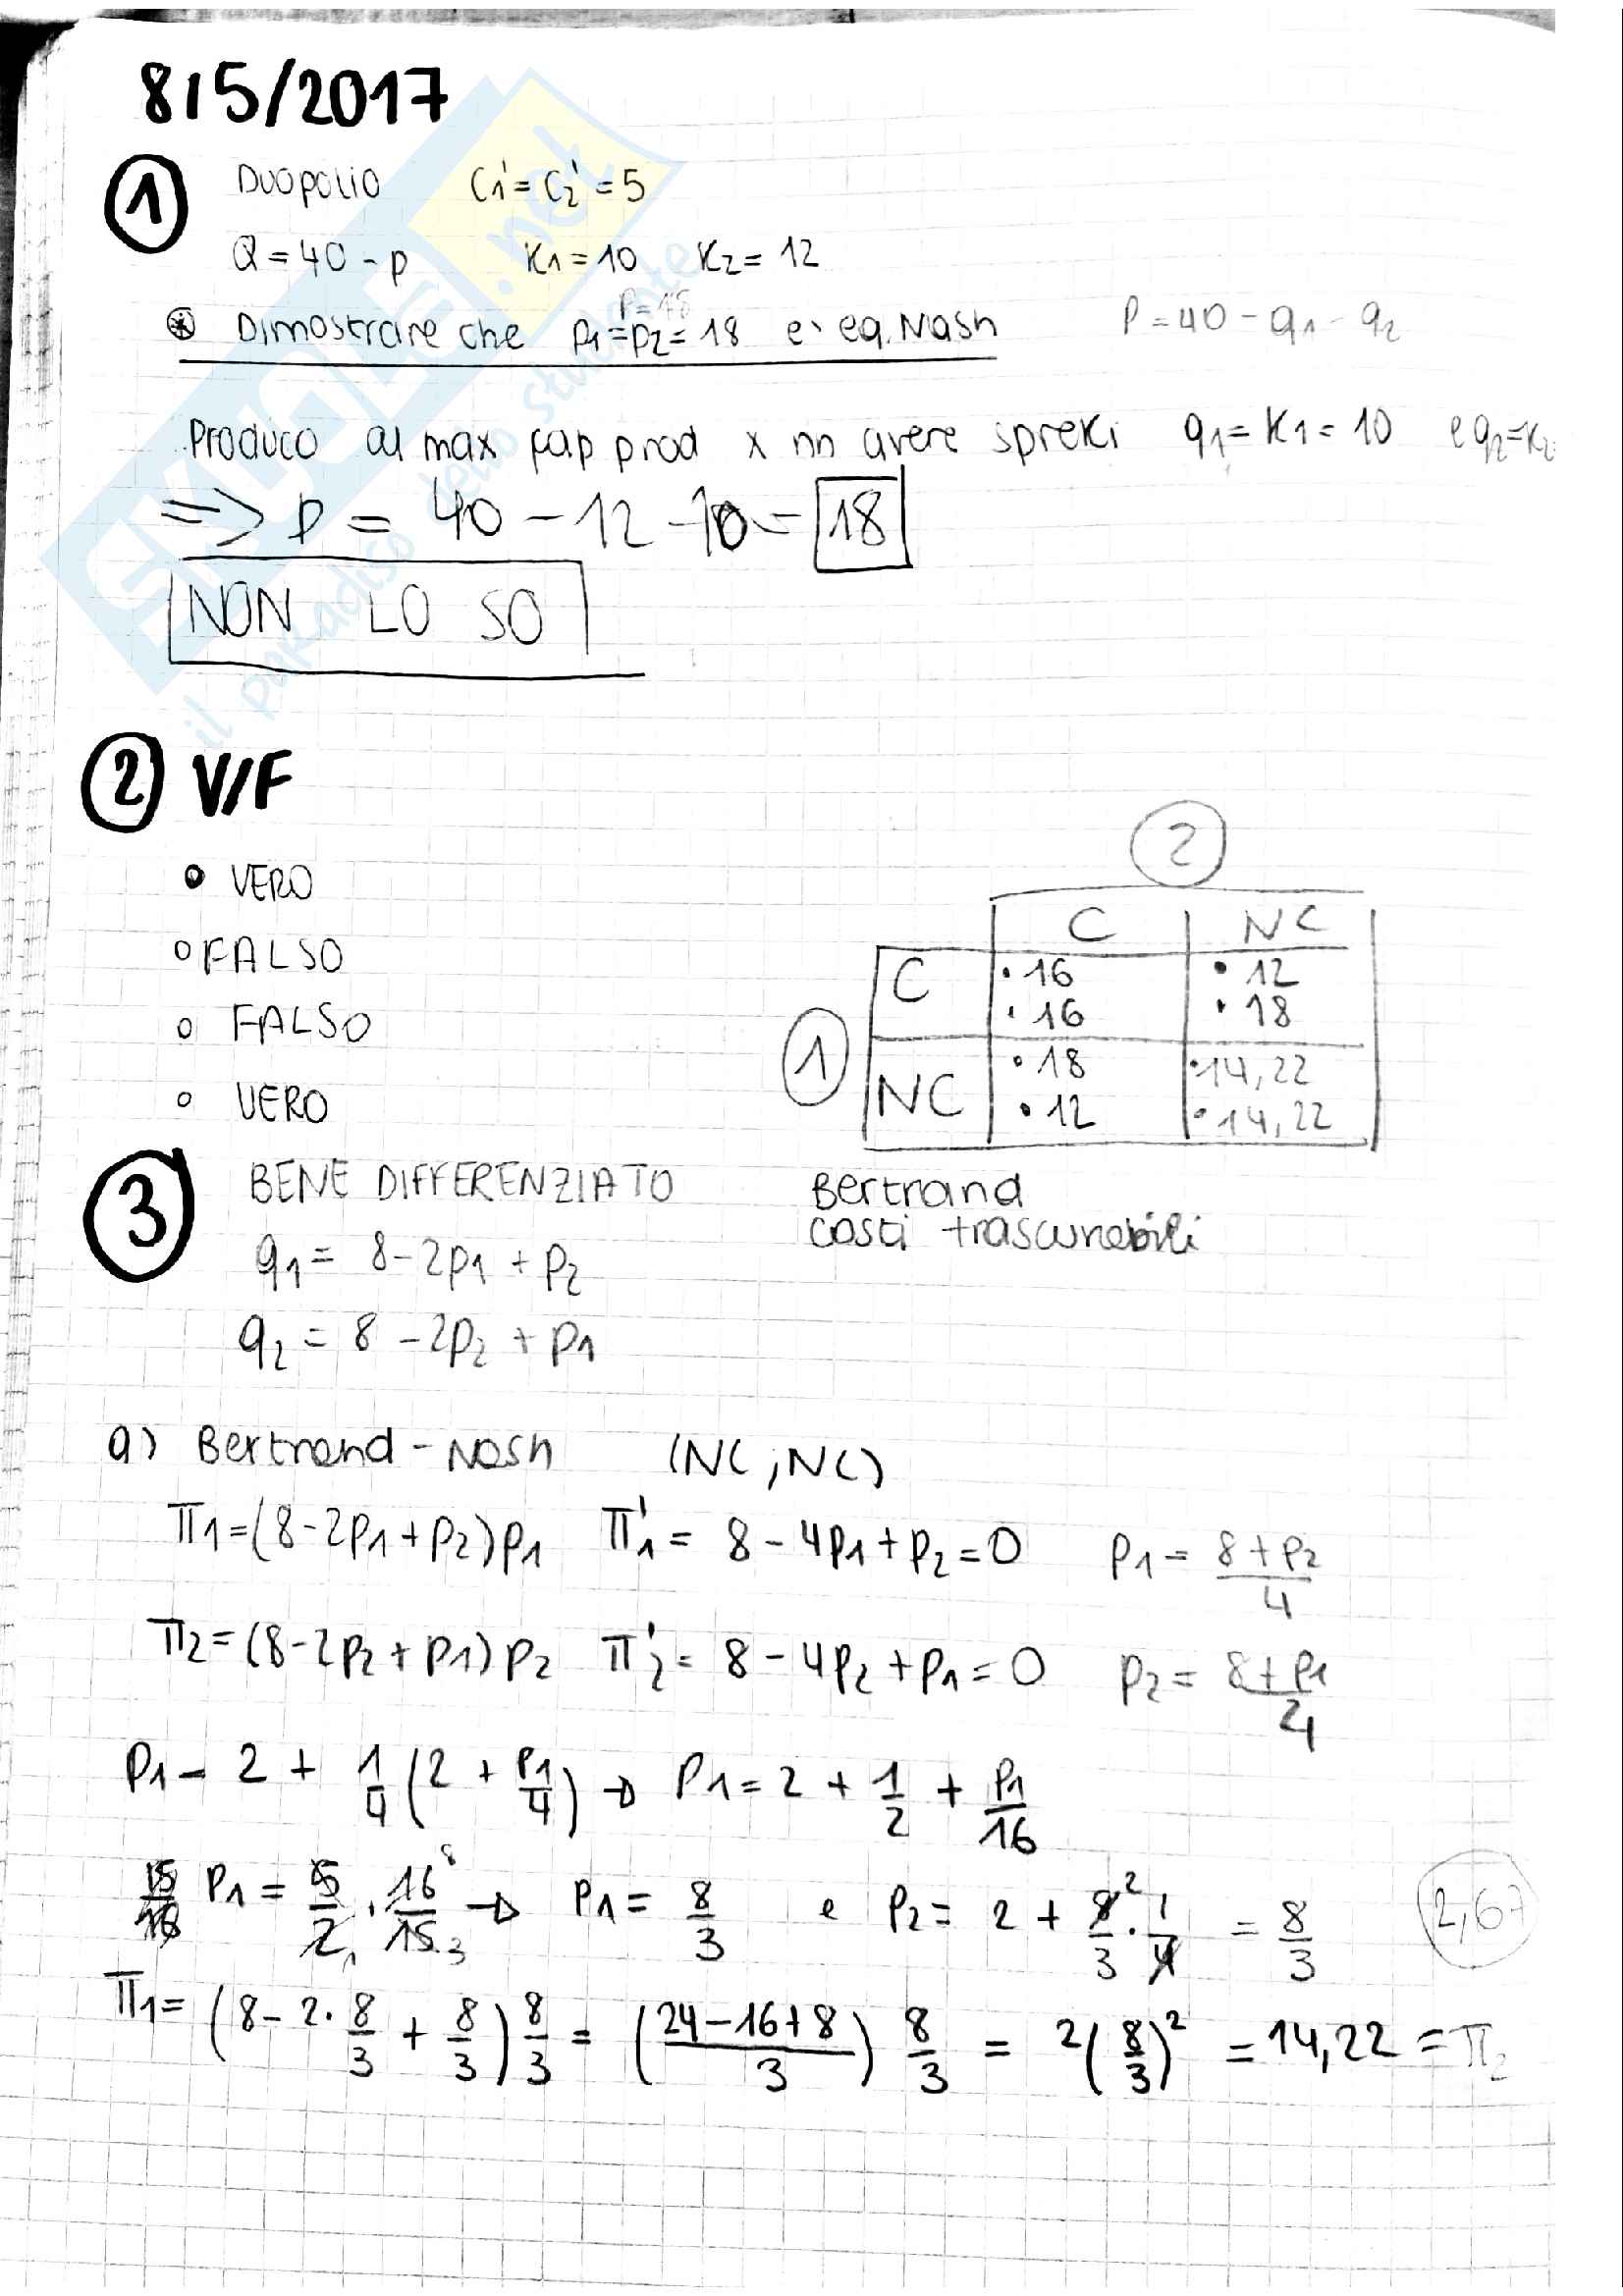 8/5/2017
① DUOPOLIO C1' = C2' = 5
Q = 40 - p K1 = 10 K2 = 12
P = 18
⊛ Dimostrare che p1 = p2 = 18 e` eq. Nash P = 40 - q1 - q2
Produco al max cap prod x nn avere spreki q1 = K1 = 10 e q2 = K2
=> p = 40 - 12 - 10 = 18
NON LO SO
② V/F
• VERO
○ FALSO
○ FALSO
○ VERO
②
C NC
C • 16 • 12
• 16 • 18
① NC • 18 • 14,22
• 12 • 14,22
③ BENE DIFFERENZIATO Bertrand
costi trascurabili
q1 = 8 - 2p1 + p2
q2 = 8 - 2p2 + p1
a) Bertrand - Nash (NC, NC)
π1 = (8 - 2p1 + p2) p1 π1' = 8 - 4p1 + p2 = 0 p1 = (8 + p2)/4
π2 = (8 - 2p2 + p1) p2 π2' = 8 - 4p2 + p1 = 0 p2 = (8 + p1)/4
p1 = 2 + 1/4 (2 + p1/4) → p1 = 2 + 1/2 + p1/16
15/16 p1 = 5/2 · 16/15 → p1 = 8/3 e p2 = 2 + 8/3 · 1/4 = 8/3 2,67
π1 = (8 - 2 · 8/3 + 8/3) 8/3 = ((24 - 16 + 8)/3) 8/3 = 2 (8/3)² = 14,22 = π2
SKUOLA.net
il paradiso dello studente